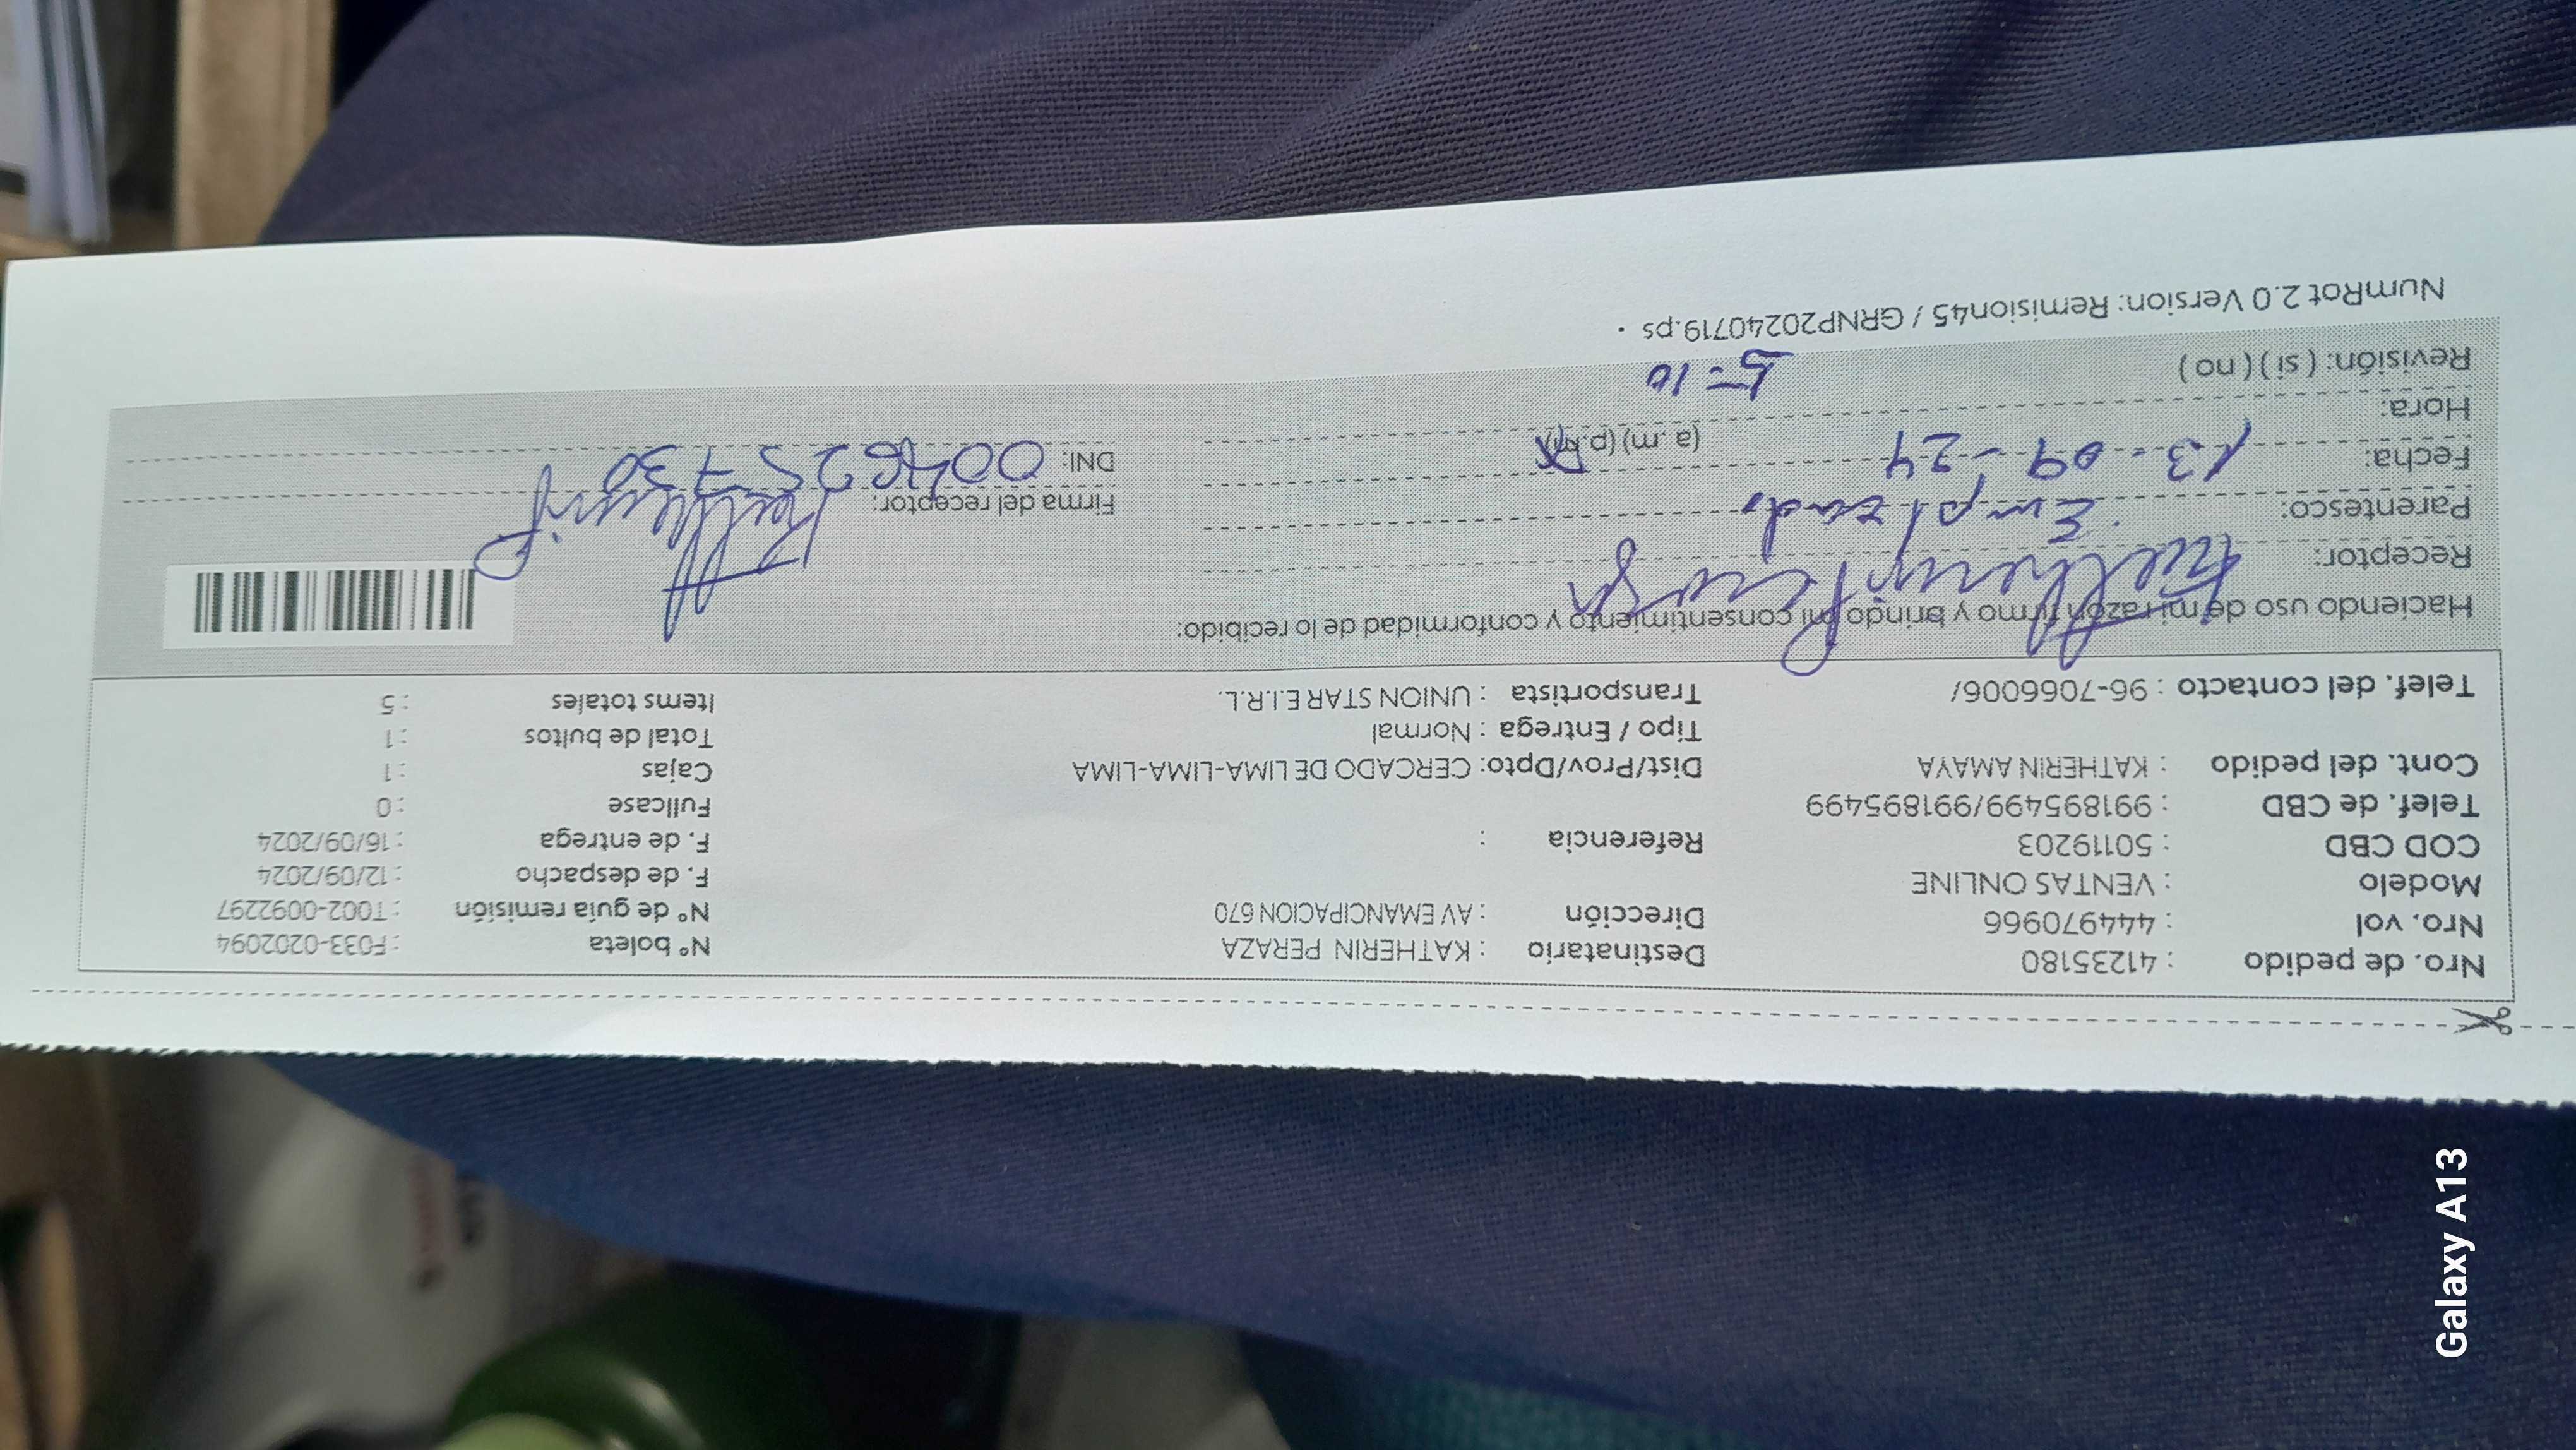 Nro. de pedido : 41235180 Destinatario : KATHERIN PERAZA N° boleta : F033-0202094
Nro. vol : 444970966 Dirección : AV EMANCIPACION 670 N° de guía remisión : T002-0092297
Modelo : VENTAS ONLINE F. de despacho : 12/09/2024
COD CBD : 50119203 Referencia : F. de entrega : 16/09/2024
Telef. de CBD : 991895499/991895499 Fullcase : 0
Cont. del pedido : KATHERIN AMAYA Dist/Prov/Dpto: CERCADO DE LIMA-LIMA-LIMA Cajas : 1
Tipo / Entrega : Normal Total de bultos : 1
Telef. del contacto : 96-7066006/ Transportista : UNION STAR E.I.R.L. Items totales : 5
Haciendo uso de mi razón firmo y brindo mi consentimiento y conformidad de lo recibido:
Receptor: Katherin Peraza
Parentesco: Empleada Firma del receptor:
Fecha: 13-09-24 DNI:
Hora: (a. m) (p. m)
5=10
Revisión: ( si ) ( no )
NumRot 2.0 Version: Remision45 / GRNP20240719.ps
Galaxy A13